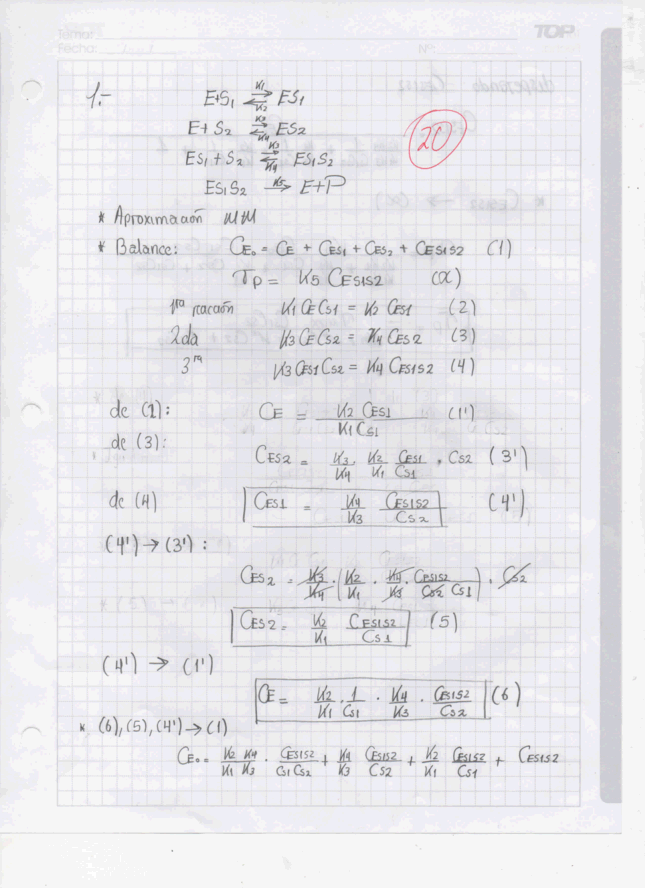 TOP
Tema:
Fecha:
N°
1.- E+S1 ⇄ ES1 K1 K2
20
E+S2 ⇄ ES2 K3 K4
ES1 + S2 ⇄ ES1S2 K3 K4
ES1S2 → E+P K5
* Aproximación MM
* Balance: CE0 = CE + CES1 + CES2 + CES1S2 (1)
rp = K5 CES1S2 (α)
1ra reacción K1 CE CS1 = K2 CES1 (2)
2da K3 CE CS2 = K4 CES2 (3)
3ra K3 CES1 CS2 = K4 CES1S2 (4)
de (2): CE = K2 CES1 / K1 CS1 (1')
de (3):
CES2 = K3/K4 . K2/K1 CES1/CS1 . CS2 (3')
de (4) CES1 = K4/K3 CES1S2/CS2 (4')
(4') → (3') :
CES2 = K3/K4 . (K2/K1 . K4/K3 . CES1S2/CS2 CS1) . CS2
CES2 = K2/K1 CES1S2/CS1 (5)
(4') → (1')
CE = K2/K1 . 1/CS1 . K4/K3 . CES1S2/CS2 (6)
* (6), (5), (4') → (1)
CE0 = K2/K1 K4/K3 . CES1S2/CS1 CS2 + K4/K3 CES1S2/CS2 + K2/K1 CES1S2/CS1 + CES1S2